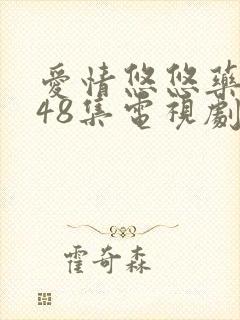 愛情悠悠藥
48集電視劇
霍奇森